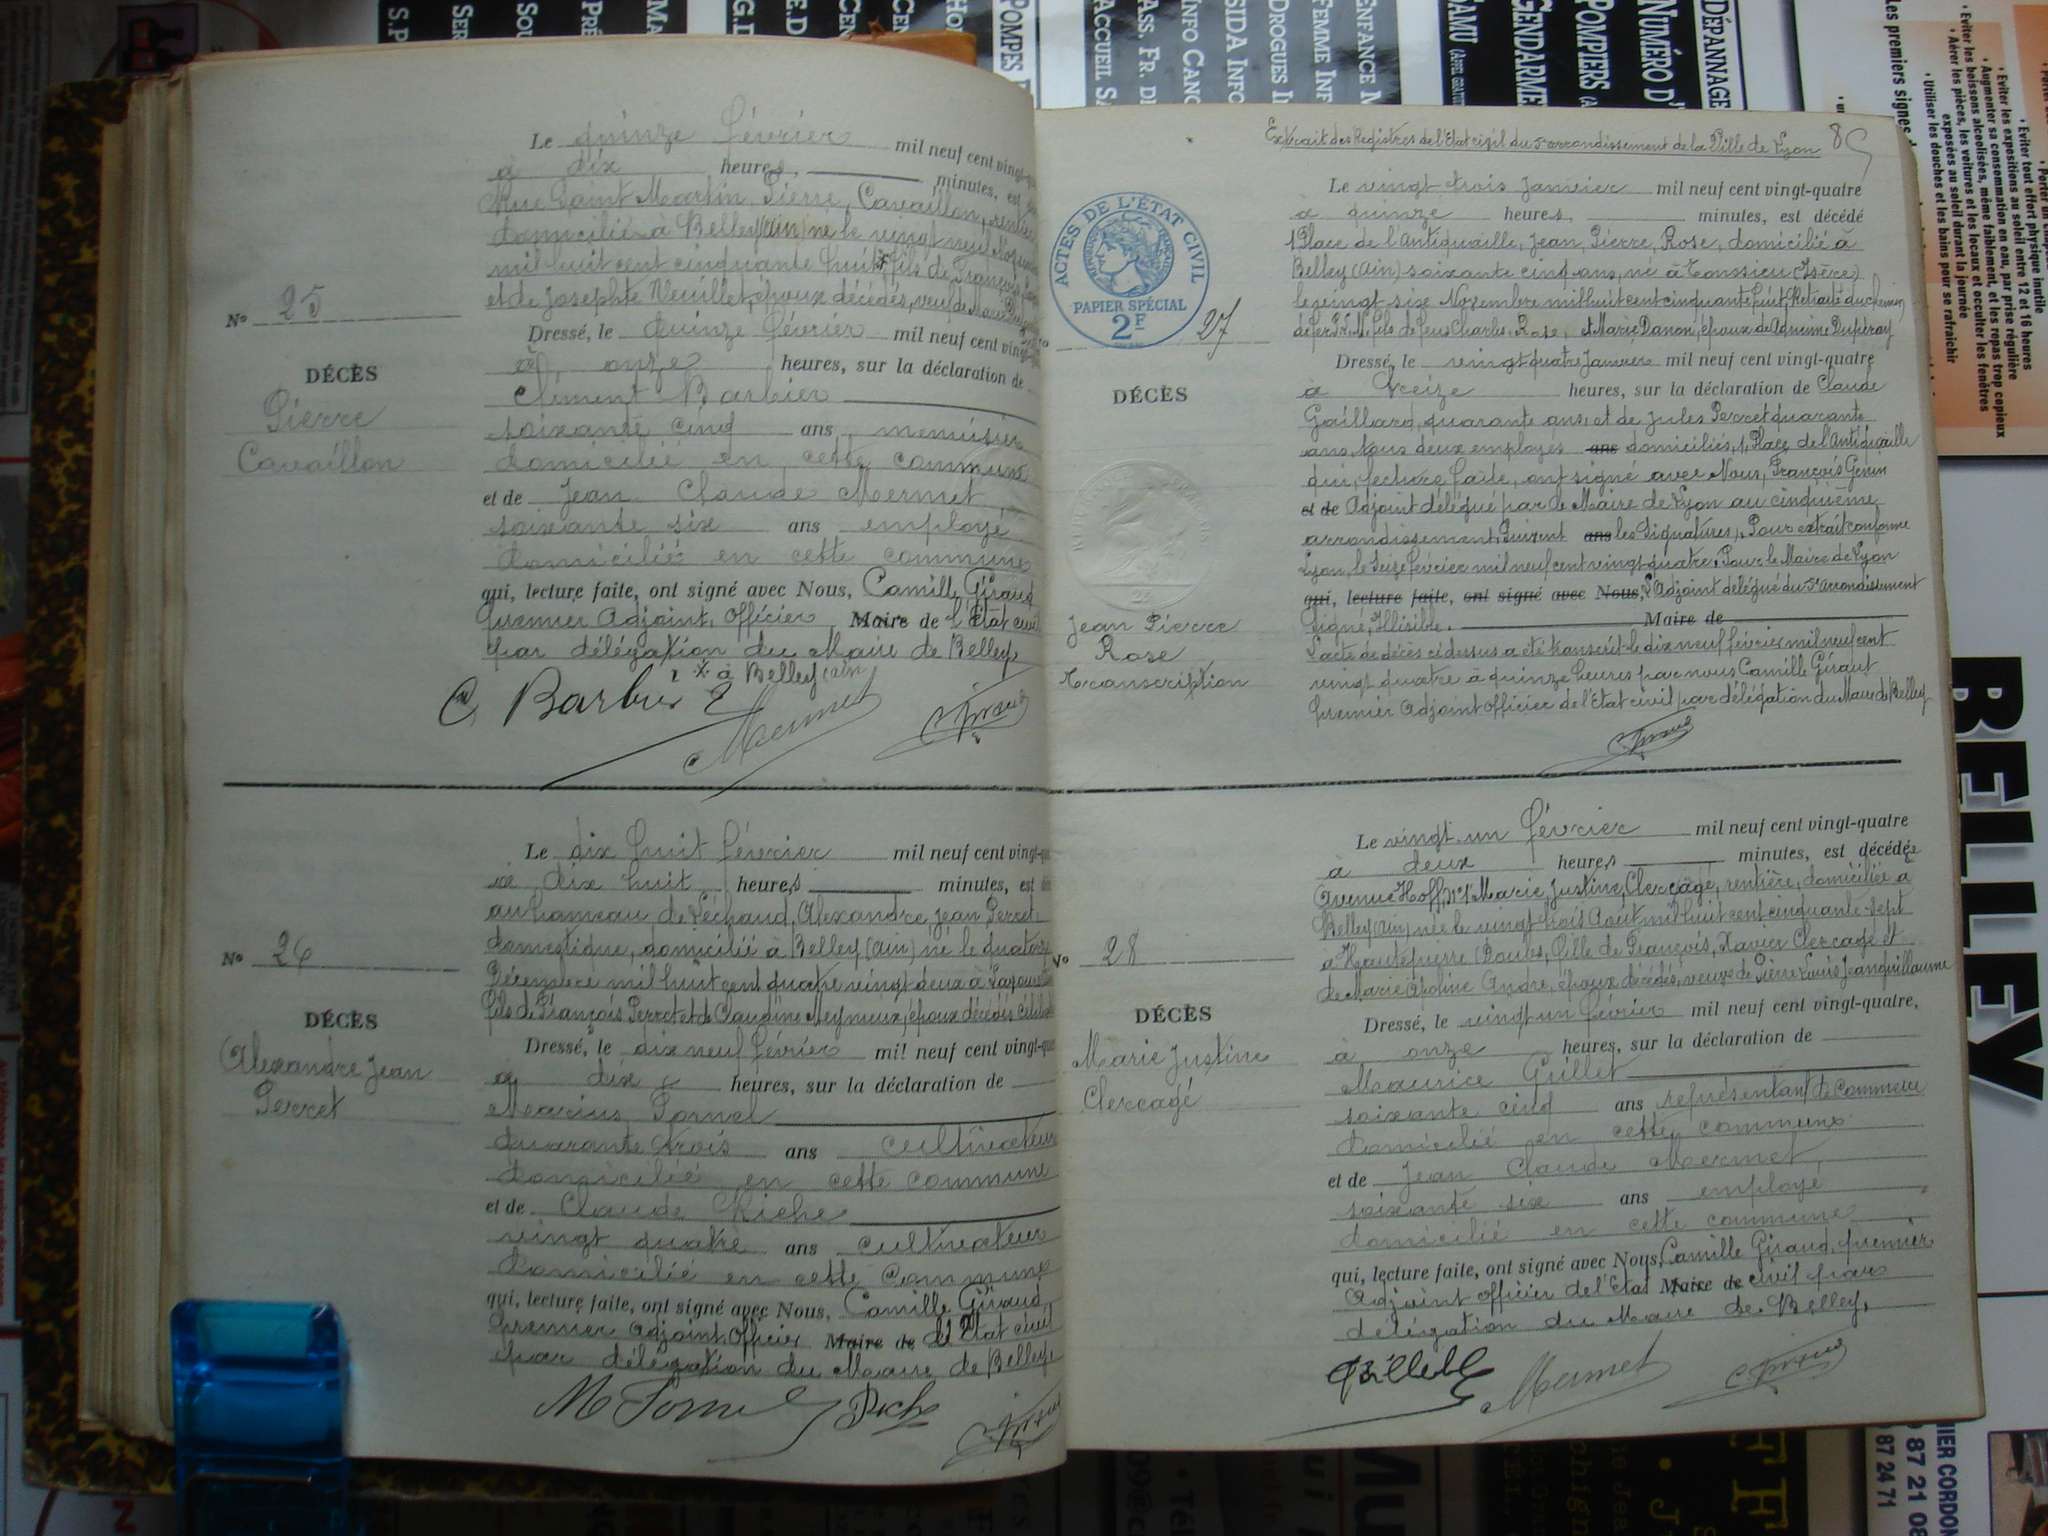 Le quinze février mil neuf cent vingt-qu
à dix heures, minutes, est
Rue Saint Martin, Pierre, Cavaillon, rentier
domicilié à Belley (Ain) né le vingt neuf Novembre
mil huit cent cinquante huit * fils de François
et de Josephte Neuillet, époux décédés, veuf de Marie
Nº 25
DÉCÈS
Pierre
Cavaillon
Dressé, le quinze février mil neuf cent vingt
à onze heures, sur la déclaration de
Clément Barbier
soixante cinq ans, menuisier
domicilié en cette commune
et de Jean Claude Mermet
soixante six ans employé
domicilié en cette commune
qui, lecture faite, ont signé avec Nous, Camille Giraud
premier Adjoint, Officier Maire de l'État civil
par délégation du Maire de Belley
* à Belley (Ain)
C. Barbier
Mermet
C Giraud
Le dix huit février mil neuf cent vingt-qu
à dix huit heures minutes, est
au hameau de Léchaud, Alexandre Jean Perret
domestique, domicilié à Belley (Ain) né le quatorze
Décembre mil huit cent quatre vingt deux à
fils de François Perret et de Claudine Meynieux, époux décédés célibataire
Nº 26
DÉCÈS
Alexandre Jean
Perret
Dressé, le dix neuf février mil neuf cent vingt-qua
à dix heures, sur la déclaration de
Marius Pornel
quarante trois ans cultivateur
domicilié en cette commune
et de Claude Riche
vingt quatre ans cultivateur
domicilié en cette Commune
qui, lecture faite, ont signé avec Nous, Camille Giraud
Premier Adjoint Officier Maire de de l'État civil
par délégation du Maire de Belley
Riche
C Giraud
Extrait des Registres de l'Etat civil du 5e arrondissement de la Ville de Lyon
85
Le vingt trois Janvier mil neuf cent vingt-quatre
à quinze heures, minutes, est décédé
1 Place de l'Antiquaille, Jean, Pierre, Rose, domicilié à
Belley (Ain) soixante cinq ans, né à Toussieu (Isère)
le vingt six Novembre mil huit cent cinquante huit, Retraité du chemin
de fer P.L.M. fils de feus Charles, Rose, et Marie Danon, époux de
ACTES DE L'ÉTAT CIVIL
RÉPUBLIQUE FRANÇAISE
PAPIER SPÉCIAL
2F
27
DÉCÈS
Jean Pierre
Rose
Transcription
Dressé, le vingt quatre Janvier mil neuf cent vingt-quatre
à treize heures, sur la déclaration de Claude
Gaillard, quarante ans, et de Jules Perret quarante
ans tous deux employés ans domiciliés, 1, Place de l'Antiquaille
qui, lecture faite, ont signé avec Nous, François Genin
et de Adjoint délégué par le Maire de Lyon au cinquième
arrondissement, Suivent ans les Signatures, Pour extrait conforme
Lyon, le Seize février mil neuf cent vingt quatre. Pour le Maire de Lyon
qui, lecture faite, ont signé avec Nous, l'Adjoint délégué du 5e arrondissement
Signé, Illisible. Maire de
L'acte de décès ci dessus a été transcrit le dix neuf février mil neuf cent
vingt quatre à quinze heures par nous Camille Giraud
premier Adjoint Officier de l'Etat civil par délégation du Maire de Belley
C Giraud
Le vingt un février mil neuf cent vingt-quatre
à deux heures minutes, est décédée
Avenue Hoff, Nº 1 Marie, Justine, Clercagé, rentière, domiciliée à
Belley (Ain) née le vingt trois Août mil huit cent cinquante-sept
à Hautepierre (Doubs), fille de François, Xavier Clercagé et
de Marie Apoline André, époux décédés, veuve de Pierre Louis Jeanguillaume
Nº 28
DÉCÈS
Marie Justine
Clercagé
Dressé, le vingt un février mil neuf cent vingt-quatre,
à onze heures, sur la déclaration de
Maurice Grillet
soixante cinq ans représentant de commerce
domicilié en cette commune
et de Jean Claude Mermet,
soixante six ans employé
domicilié en cette commune
qui, lecture faite, ont signé avec Nous, Camille Giraud, premier
Adjoint officier de l'Etat Maire de civil par
délégation du Maire de Belley.
Grillet
Mermet
C Giraud
POMPES
ACCUEIL SA
ASS. FR. DE
INFO CANC
SIDA INFO
DROGUES I
FEMME INF
ENFANCE M
SAMU (APPEL GRATUIT
GENDARME
POMPIERS (A
NUMÉRO D'
DÉPANNAGE
Les premiers signes d
• Utiliser les douches et les bains pour se rafraîchir
exposées au soleil durant la journée
• Aérer les pièces, les voitures et les locaux et occulter les fenêtres
• Eviter les boissons alcoolisées, même faiblement, et les repas trop copieux
• Augmenter sa consommation en eau, par prise régulière
• Eviter les expositions au soleil entre 12 et 16 heures
• Eviter tout effort physique inutile
BELLEY
HIER CORDON
87 21 08
87 24 71